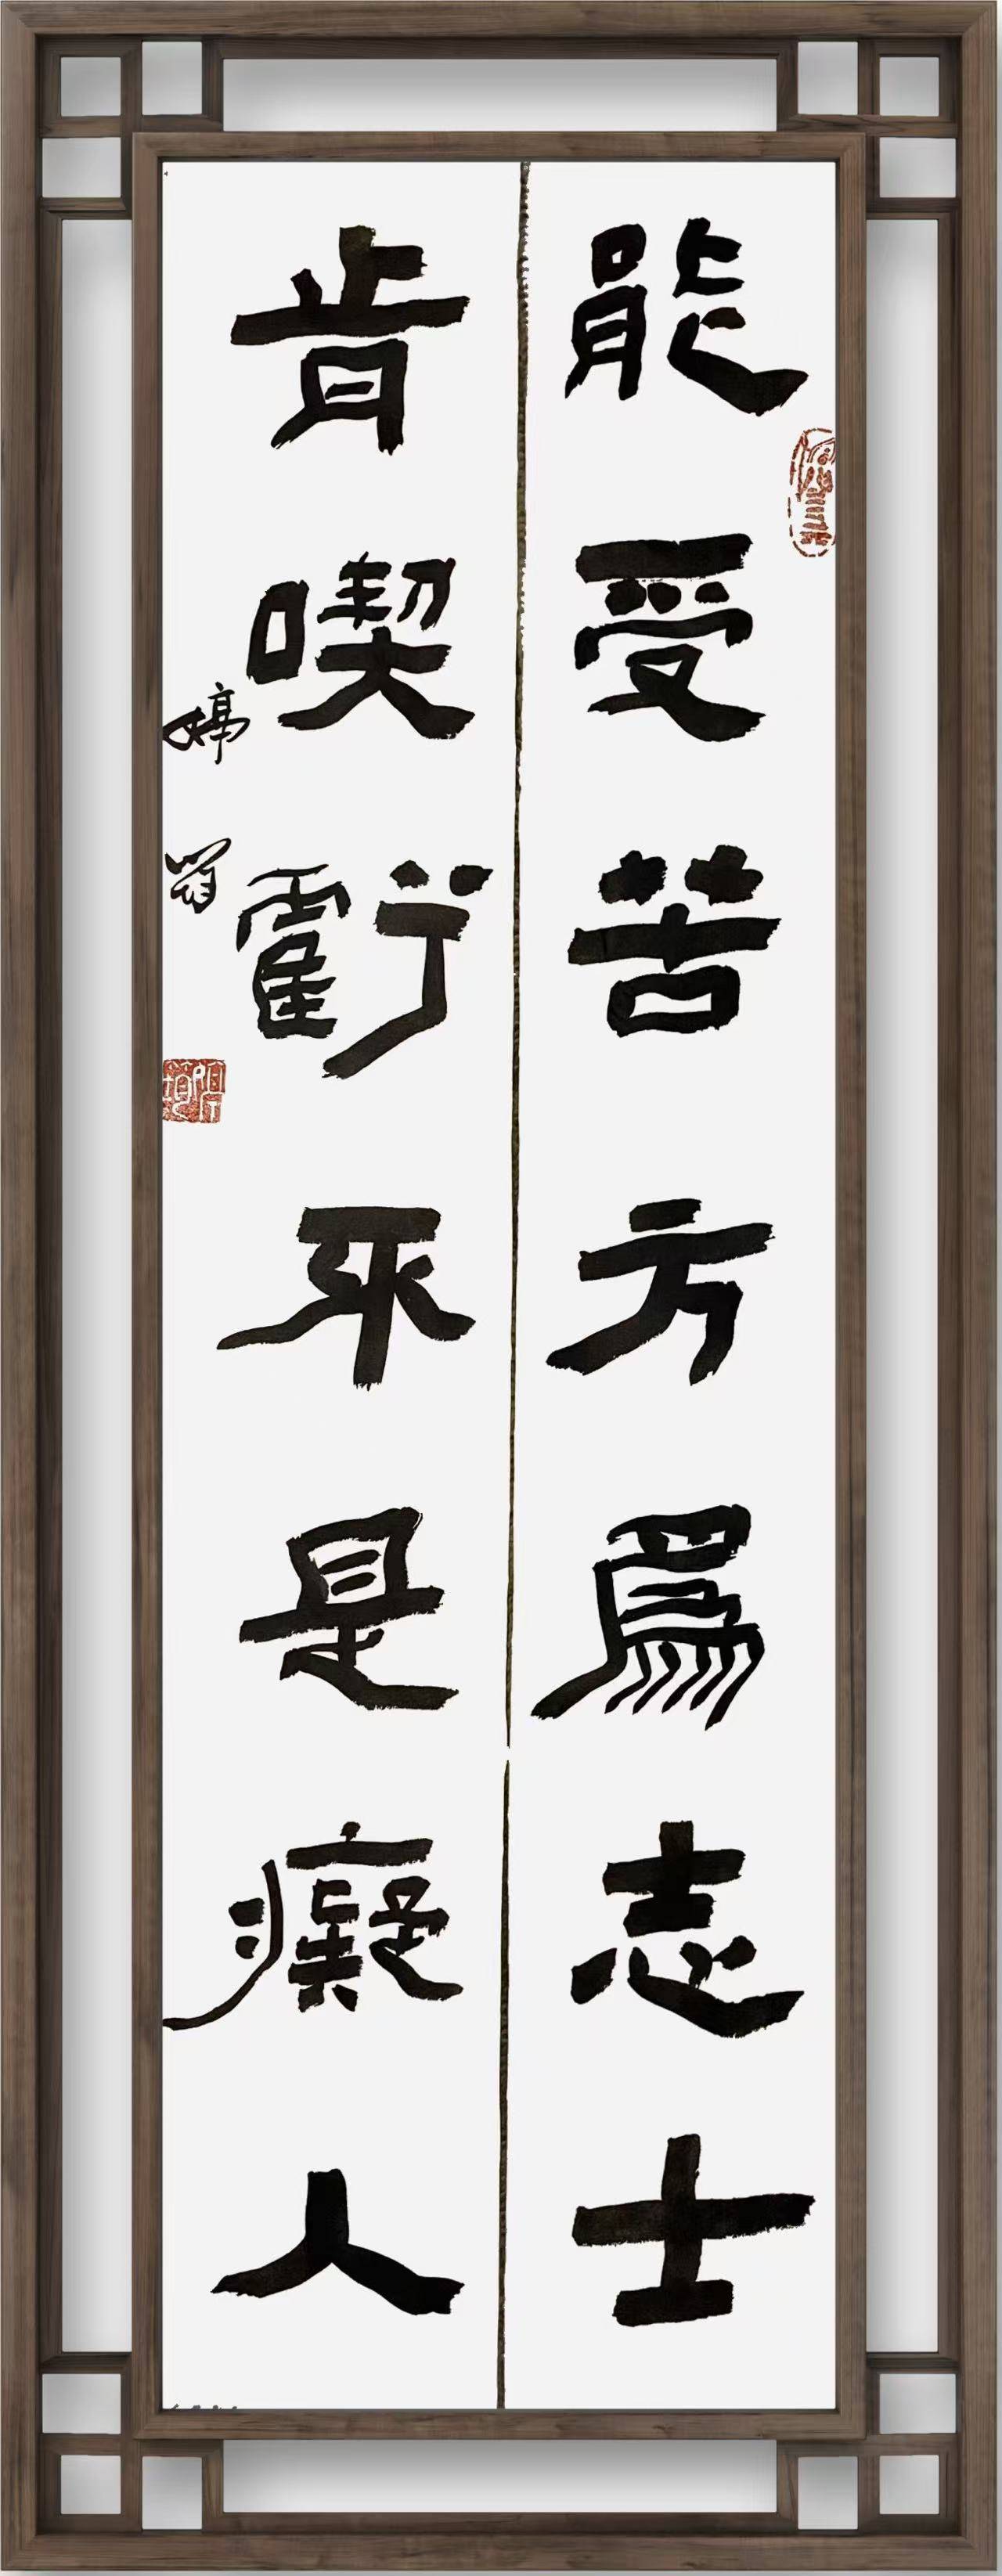 能受苦方爲志士
肯喫虧不是癡人
婷